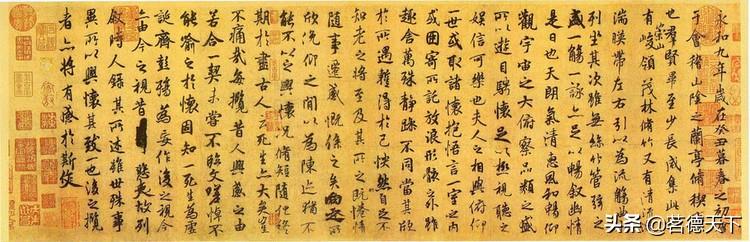 永和九年歲在癸丑暮春之初會
于會稽山陰之蘭亭脩稧事
也羣賢畢至少長咸集此地
有崇山峻領茂林脩竹又有清流激
湍暎帶左右引以為流觴曲水
列坐其次雖無絲竹管弦之
盛一觴一詠亦足以暢叙幽情
是日也天朗氣清惠風和暢仰
觀宇宙之大俯察品類之盛
所以遊目騁懷足以極視聽之
娛信可樂也夫人之相與俯仰
一世或取諸懷抱悟言一室之內
或因寄所託放浪形骸之外雖
趣舍萬殊靜躁不同當其欣
於所遇蹔得於己怏然自足不
知老之將至及其所之既惓情
隨事遷感慨係之矣向之所
欣俛仰之閒以為陳迹猶不
能不以之興懷況脩短隨化終
期於盡古人云死生亦大矣豈
不痛哉每攬昔人興感之由
若合一契未嘗不臨文嗟悼不
能喻之於懷固知一死生為虛
誕齊彭殤為妄作後之視今
亦由今之視昔悲夫故列
敘時人錄其所述雖世殊事
異所以興懷其致一也後之攬
者亦將有感於斯文
头条 @茗德天下